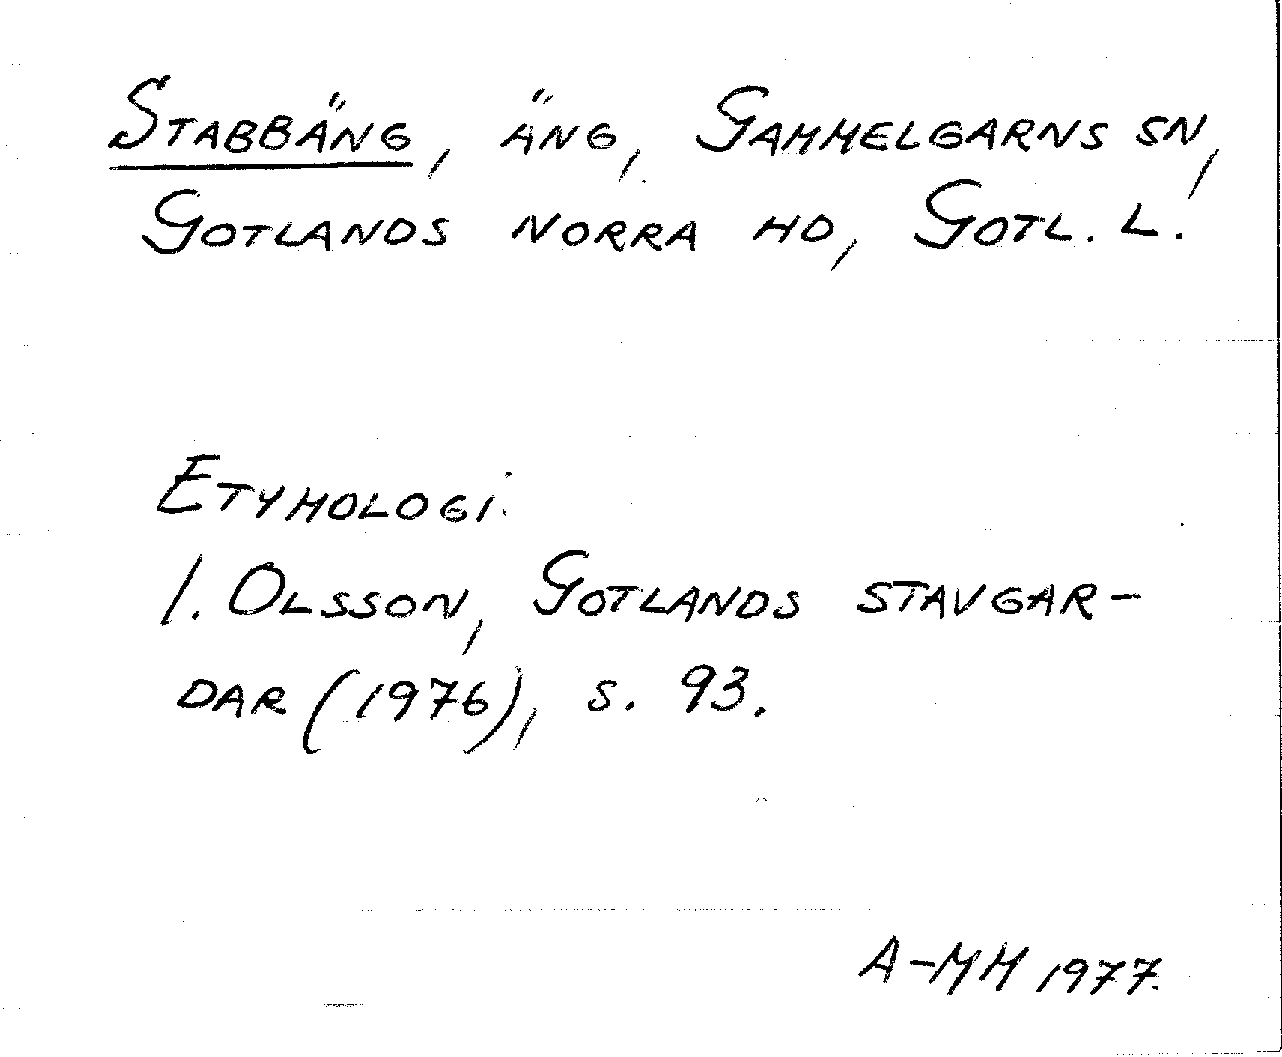 Stabbäng, äng, Gammelgarns sn,
Gotlands norra hd, Gotl. l.
Etymologi:
I. Olsson, Gotlands stavgar-
dar (1976), s. 93.
A-MH 1977.